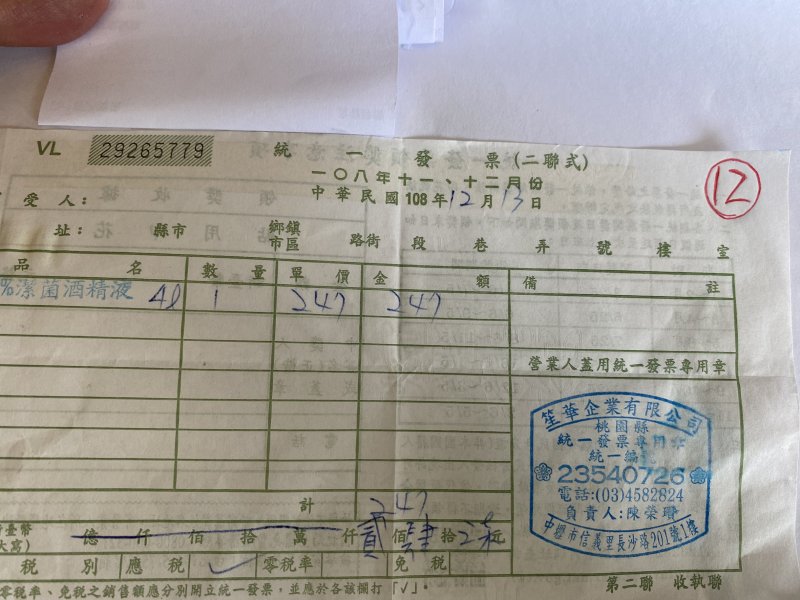 VL 29265779 統一發票(二聯式)
一〇八年十一、十二月份
中華民國108年12月13日
12
受人:
址: 縣市 鄉鎮市區 路街 段 巷 弄 號 樓 室
品名 數量 單價 金額 備註
%潔菌酒精液 4l 1 247 247
營業人蓋用統一發票專用章
笙華企業有限公司
桃園縣
統一發票專用章
統一編號
23540726
電話:(03)4582824
負責人:陳榮
中壢市信義里長沙路201號1樓
計 247
臺幣
大寫) 億仟佰拾萬仟貳佰肆拾 元
稅別 應稅 ✓ 零稅率 免稅
零稅率、免稅之銷售額應分別開立統一發票,並應於各該欄打「V」。
第二聯 收執聯